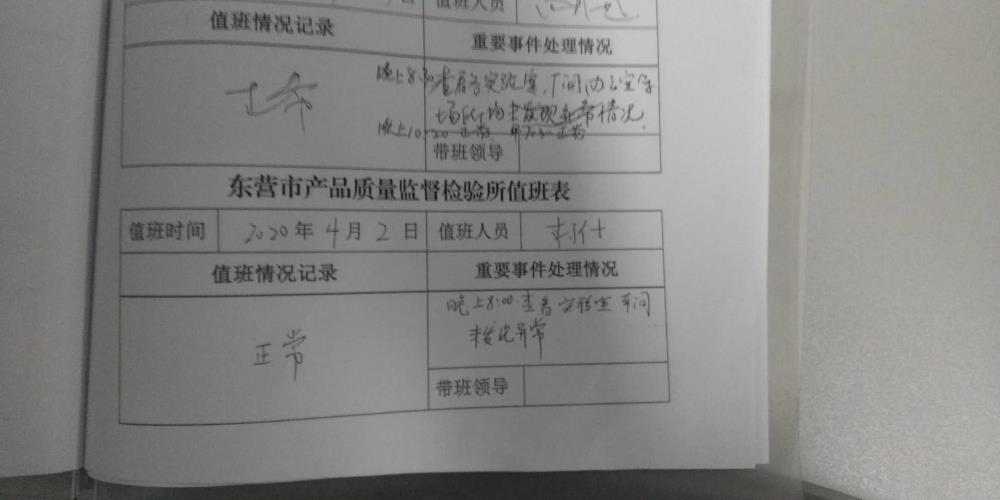 日 值班人员
值班情况记录 重要事件处理情况
正常
晚上8:30查看各实验室,车间,办公室等
场所,均未发现异常情况.
晚上10:20正常. 早7:30正常
带班领导
东营市产品质量监督检验所值班表
值班时间 2020年4月2日 值班人员
值班情况记录 重要事件处理情况
正常
晚上8:00.查看实验室 车间
未发现异常
带班领导